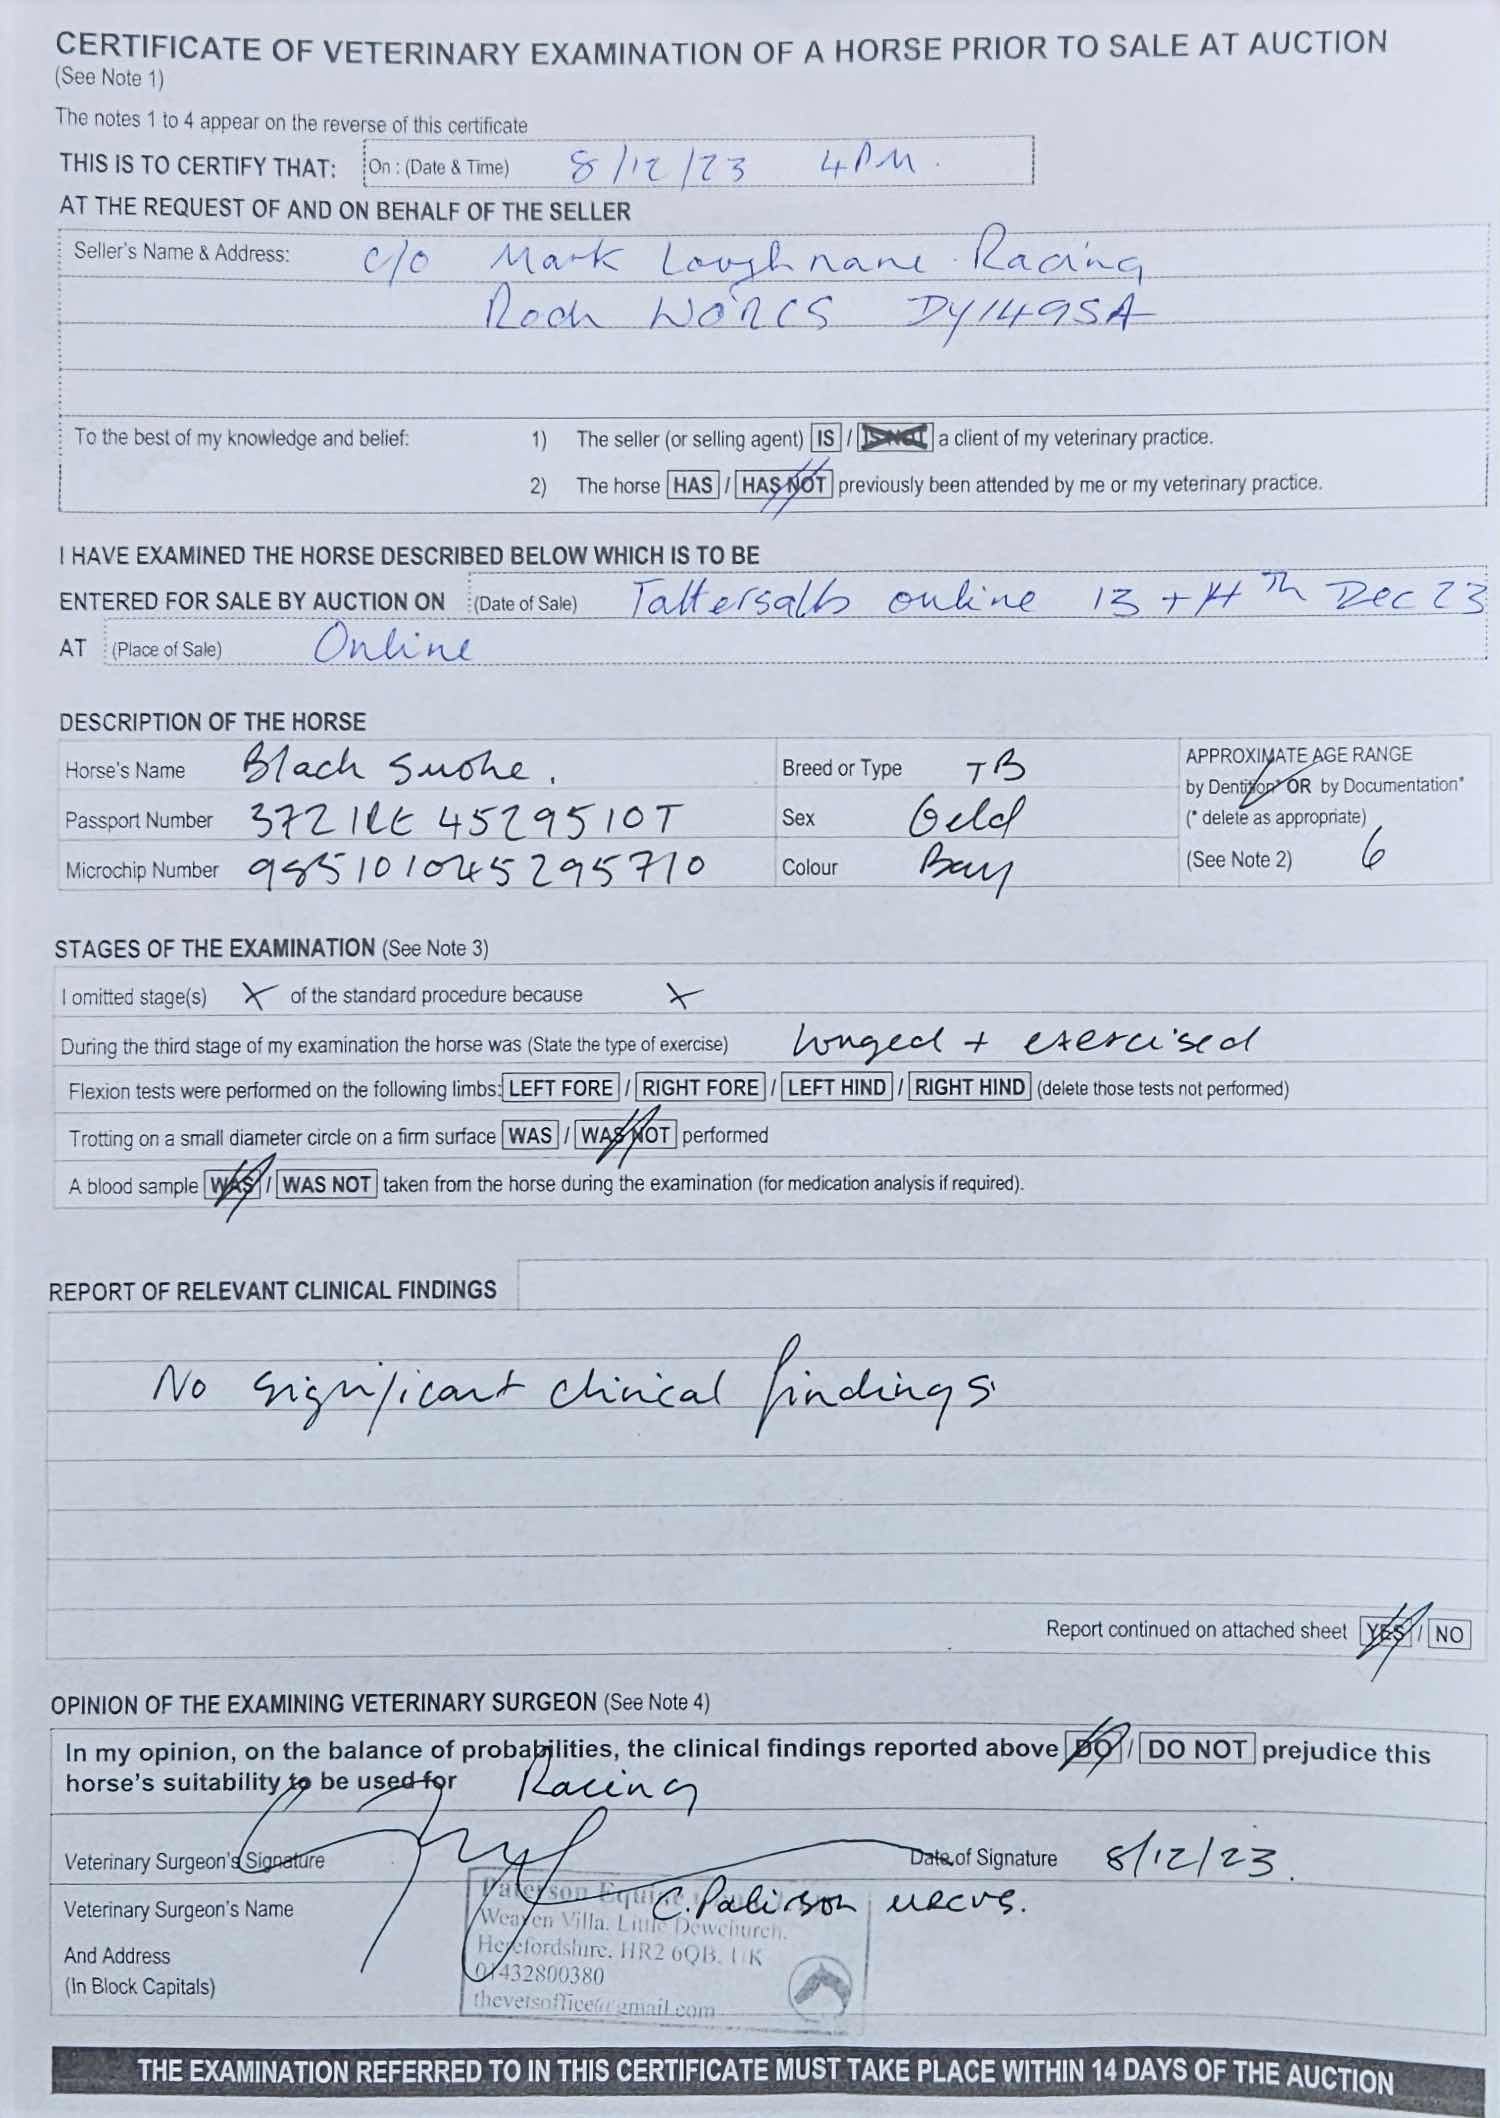 CERTIFICATE OF VETERINARY EXAMINATION OF A HORSE PRIOR TO SALE AT AUCTION
(See Note 1)
The notes 1 to 4 appear on the reverse of this certificate
THIS IS TO CERTIFY THAT: On : (Date & Time) 8/12/23 4PM.
AT THE REQUEST OF AND ON BEHALF OF THE SELLER
Seller's Name & Address: c/o Mark Loughnane Racing
Rock WORCS DY149SA
To the best of my knowledge and belief: 1) The seller (or selling agent) IS / IS NOT a client of my veterinary practice.
2) The horse HAS / HAS NOT previously been attended by me or my veterinary practice.
I HAVE EXAMINED THE HORSE DESCRIBED BELOW WHICH IS TO BE
ENTERED FOR SALE BY AUCTION ON (Date of Sale) Tattersalls online 13 + 14th Dec 23
AT (Place of Sale) Online
DESCRIPTION OF THE HORSE
Horse's Name Black Smoke. Breed or Type TB APPROXIMATE AGE RANGE
by Dentition* OR by Documentation*
Passport Number 372 IRE 4529510T Sex Geld (* delete as appropriate)
Microchip Number 985101045295710 Colour Bay (See Note 2) 6
STAGES OF THE EXAMINATION (See Note 3)
I omitted stage(s) X of the standard procedure because X
During the third stage of my examination the horse was (State the type of exercise) lunged + exercised
Flexion tests were performed on the following limbs: LEFT FORE / RIGHT FORE / LEFT HIND / RIGHT HIND (delete those tests not performed)
Trotting on a small diameter circle on a firm surface WAS / WAS NOT performed
A blood sample WAS / WAS NOT taken from the horse during the examination (for medication analysis if required).
REPORT OF RELEVANT CLINICAL FINDINGS
No significant clinical findings
Report continued on attached sheet YES / NO
OPINION OF THE EXAMINING VETERINARY SURGEON (See Note 4)
In my opinion, on the balance of probabilities, the clinical findings reported above DO / DO NOT prejudice this
horse's suitability to be used for Racing
Veterinary Surgeon's Signature Date of Signature 8/12/23.
Paterson Equine
Veterinary Surgeon's Name C. MRCVS.
Weaven Villa. Little Dewchurch.
And Address Herefordshire. HR2 6QB. UK
(In Block Capitals) 01432800380
thevetsoffice@gmail.com
THE EXAMINATION REFERRED TO IN THIS CERTIFICATE MUST TAKE PLACE WITHIN 14 DAYS OF THE AUCTION